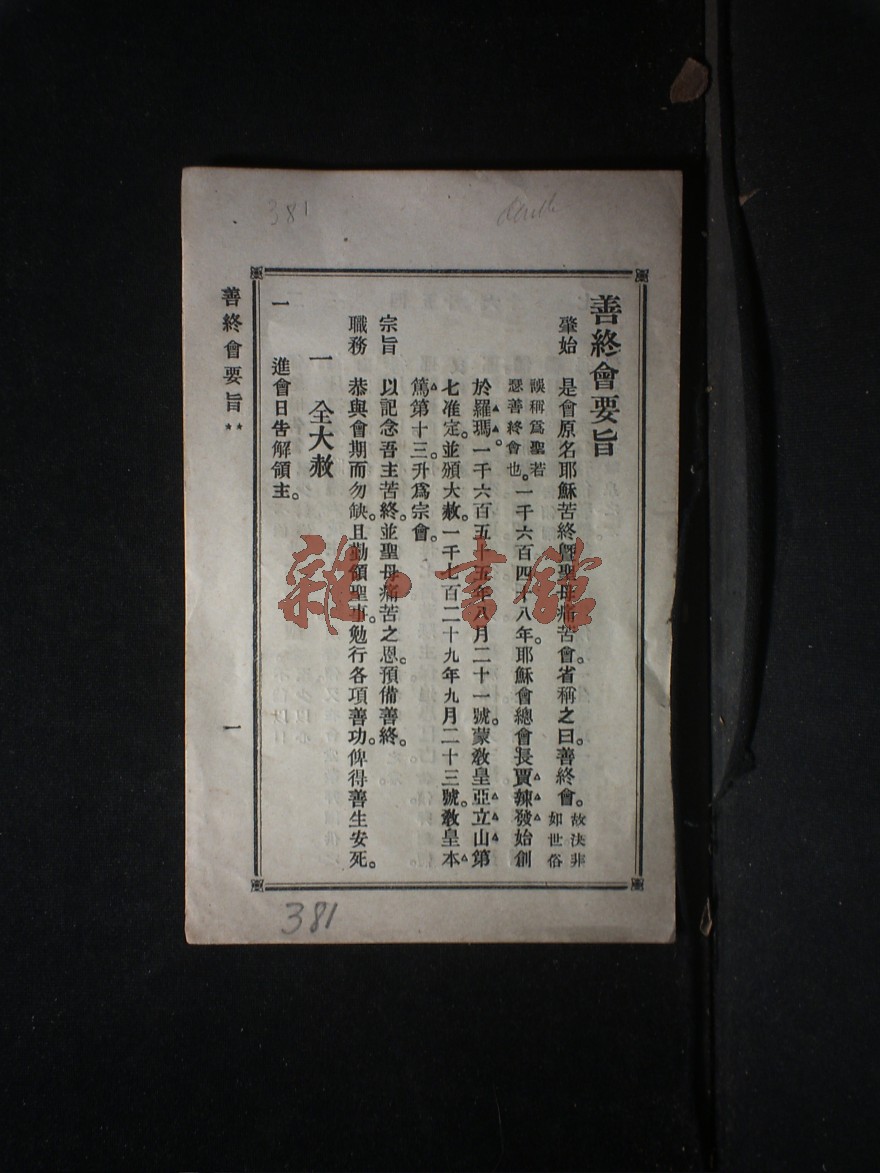 381
善終會要旨
肇始 是會原名耶穌苦終曁聖母痛苦會。省稱之曰善終會。故決非如世俗
誤稱爲聖若瑟善終會也。一千六百四十八年。耶穌會總會長賈辣發始創
於羅瑪。一千六百五十五年八月二十一號。蒙敎皇亞立山第
七准定。並頒大赦。一千七百二十九年九月二十三號。敎皇本
篤第十三升爲宗會。
宗旨 以記念吾主苦終。並聖母痛苦之恩。預備善終。
職務 恭與會期而勿缺。且勤領聖事。勉行各項善功。俾得善生安死。
一 全大赦
一 進會日告解領主。
善終會要旨 ★★ 一
雜·書館
381